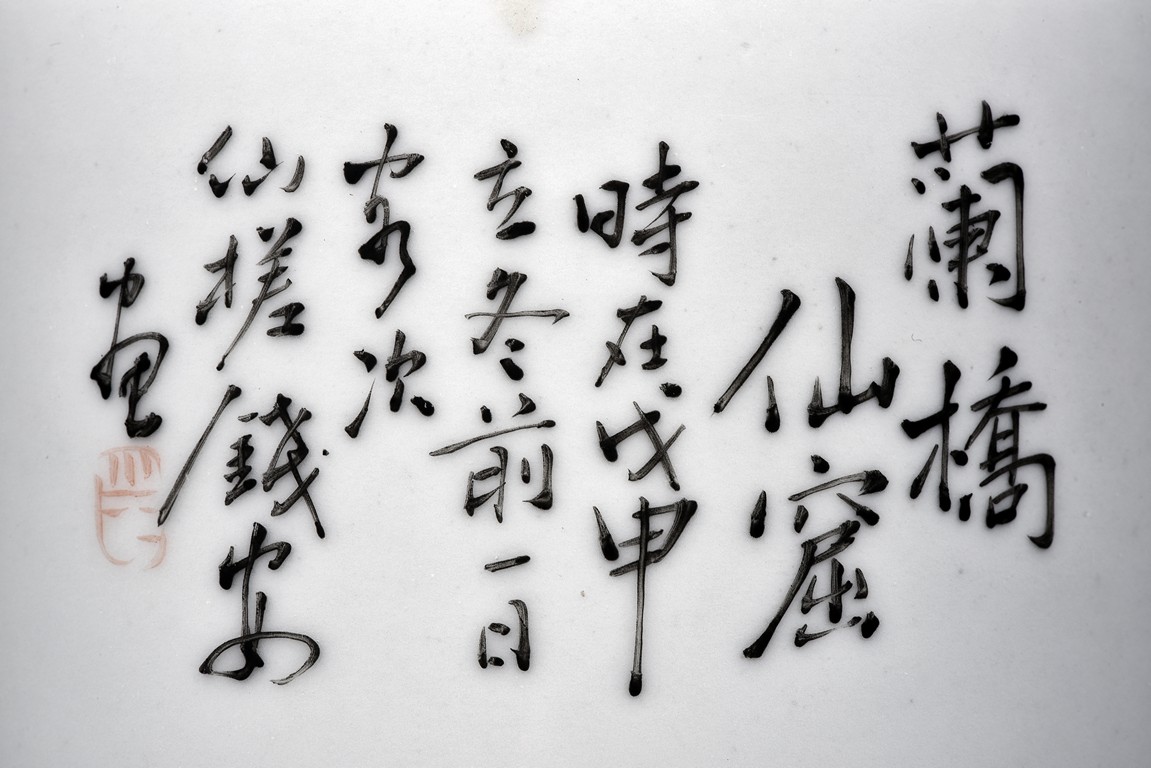 蘭橋
仙窟
時在戊申
立冬前一日
客次
仙槎錢安
畫